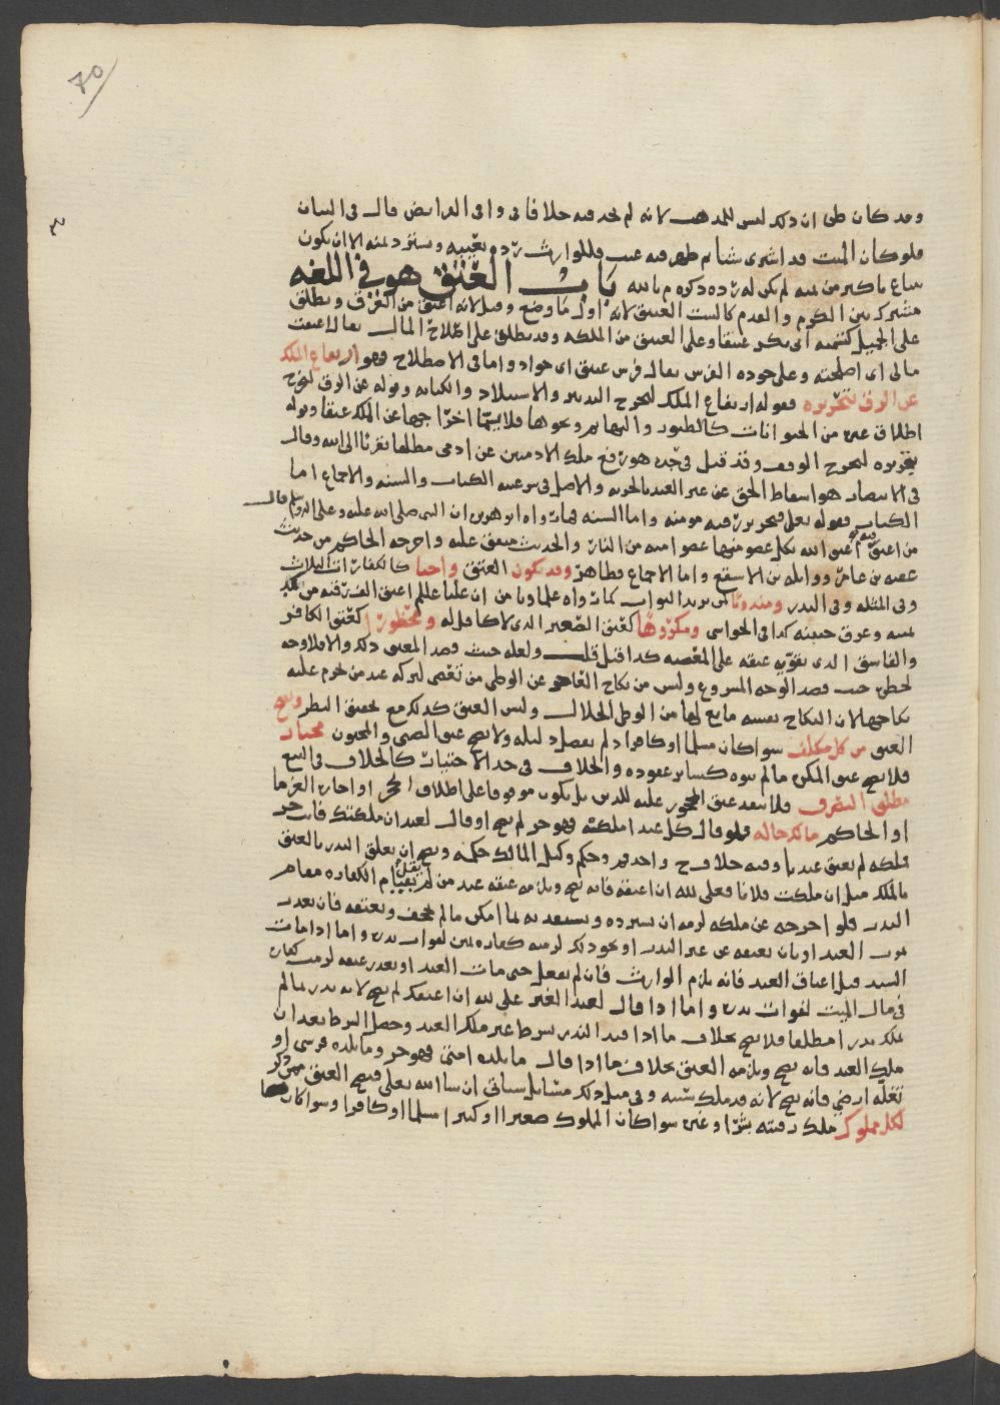 70
وقد كان ظن ان ذلك ليس للمذهب لانه لم يجد فيه خلافا في وافي الفرايض قال في البيان
فلو كان الميت قد اشترى شيا ثم ظهر فيه عيب فللوارث رده بعيبه ويسترد ثمنه الا ان يكون
باع باكثر من ثمنه لم يكن له رده ذكره م بالله باب العتق هو في اللغه
مشترك بين الكرم والقدم كالبيت العتيق لانه اول ما وضع وقيل لانه اعتق من الغرق ويطلق
على الجميل كتسمية ابي بكر عتيقا وعلى العتيق من الملكه وقد يطلق على اصلاح المال يقال اعتقت
مالي اي اصلحته وعلى جوده الفرس يقال فرس عتيق اي جواد واما في الاصطلاح فهو ارتفاع الملك
عن الرق بتحريره فقوله ارتفاع الملك ليخرج التدبير والاستيلاد والكتابه وقوله عن الرق ليخرج
اطلاق غيره من الحيوانات كالطيور والبهايم ونحوها فلا يسمى اخراجها عن الملك عتقا وقوله
بتحريره ليخرج الوقف وقد قيل في حده هو رفع ملك الادميين عن ادمي مطلقا تقربا الى الله وقال
في الانتصار هو اسقاط الحق عن غير العبد بالحريه والاصل في شرعيته الكتاب والسنه والاجماع اما
الكتاب فقوله تعلى فتحرير رقبه مومنه واما السنه فما رواه ابو هريره ان النبي صلى الله عليه وعلى اله وسلم قال
من اعتق رقبه اعتق الله بكل عضو منها عضوا منه من النار والحديث متفق عليه واخرجه الحاكم من حديث
عقبه بن عامر وواثله بن الاسقع واما الاجماع فظاهر وقد يكون العتق واجبا كالكفارات الثلاث
وفي المثله وفي النذر ومندوبا لمن يريد الثواب كما رواه علماونا من ان عليا عللم اعتق الف رقبه من كد
يمينه وعرق جبينه كذا في الحواشي ومكروها كعتق الصغير الذي لا كافل له ومحظورا كعتق الكافر
والفاسق الذي يقويه عتقه على المعصيه كذا قيل قلت ولعله حيث قصد المعتق ذلك والا فلا وجه
لحظره حيث قصد الوجه المشروع وليس من نكاح العاجز عن الوطي من تعصي لتركه عند من يحرم عليه
نكاحها لان النكاح نفسه مانع لها من الوطي الحلال وليس العتق كذلك مع تحقيق النظر ويصح
العتق من كل مكلف سوا كان مسلما او كافرا ولم يفصل دليله ولا يصح عتق الصبي والمجنون مختار
فلا يصح عتق المكره ما لم ينوه كساير عقوده والخلاف في حد الاختيار كالخلاف في البيع
مطلق التصرف فلا ينفذ عتق المحجور عليه للدين بل يكون موقوفا على اطلاق الحجر او اجازه الغرما
او الحاكم مالك حاله فلو قال كل عبد املكه فهو حر لم يصح او قال لعبد ان ملكتك فانت حر
فملكه لم يعتق عندنا وفيه خلاف ح واحد قوم وحكم وكيل المالك حكمه ويصح ان يعلق النذر بالعتق
بالملك مثل ان ملكت فلانا فعلي لله ان اعتقه فانه يصح ويلزمه عتقه عند من لم يقل بقيام الكفاره مقام
النذر فلو اخرجه عن ملكه لزمه ان يسترده ويستفديه بما امكن ما لم يجحف ويعتقه فان تعذر
بموت العبد او بان يعتقه عن غير النذر او نحو ذلك لزمته كفاره يمين لفوات نذره واما اذا مات
السيد قبل اعتاق العبد فانه يلزم الوارث فان لم يفعل حتى مات العبد او تعذر عتقه لزمت كفاره
في مال الميت لفوات نذره واما اذا قال لعبد الغير علي لله ان اعتقك لم يصح لانه نذر بما لم
يملك نذرا مطلقا فلا يصح بخلاف ما اذا قيد النذر بشرط غير ملك العبد وحصل الشرط بعد ان
ملك العبد فانه يصح ويلزمه العتق بخلاف ما اذا قال ما تلده امتي فهو حر وما تلده فرسي او
تغله ارضي فانه يصح لانه قد ملك سببه وفي مثل ذلك مسايل ستاتي ان شا الله تعلى فيصح العتق ممن ذكر
لكل مملوك ملك رقبته بشرا او غيره سوا كان المملوك صغيرا او كبيرا مسلما او كافرا وسوا كان